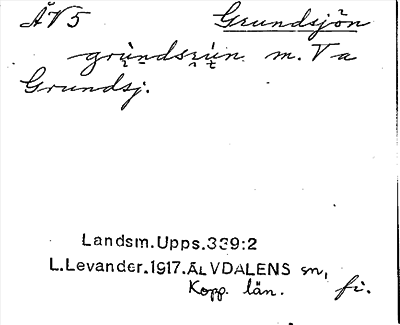 ÄV5 Grundsjön
grùndsʒùn. m. Va
Grundsj.
Landsm.Upps.339:2
L.Levander.1917.ÄLVDALENS sn,
Kopp. län. fi.